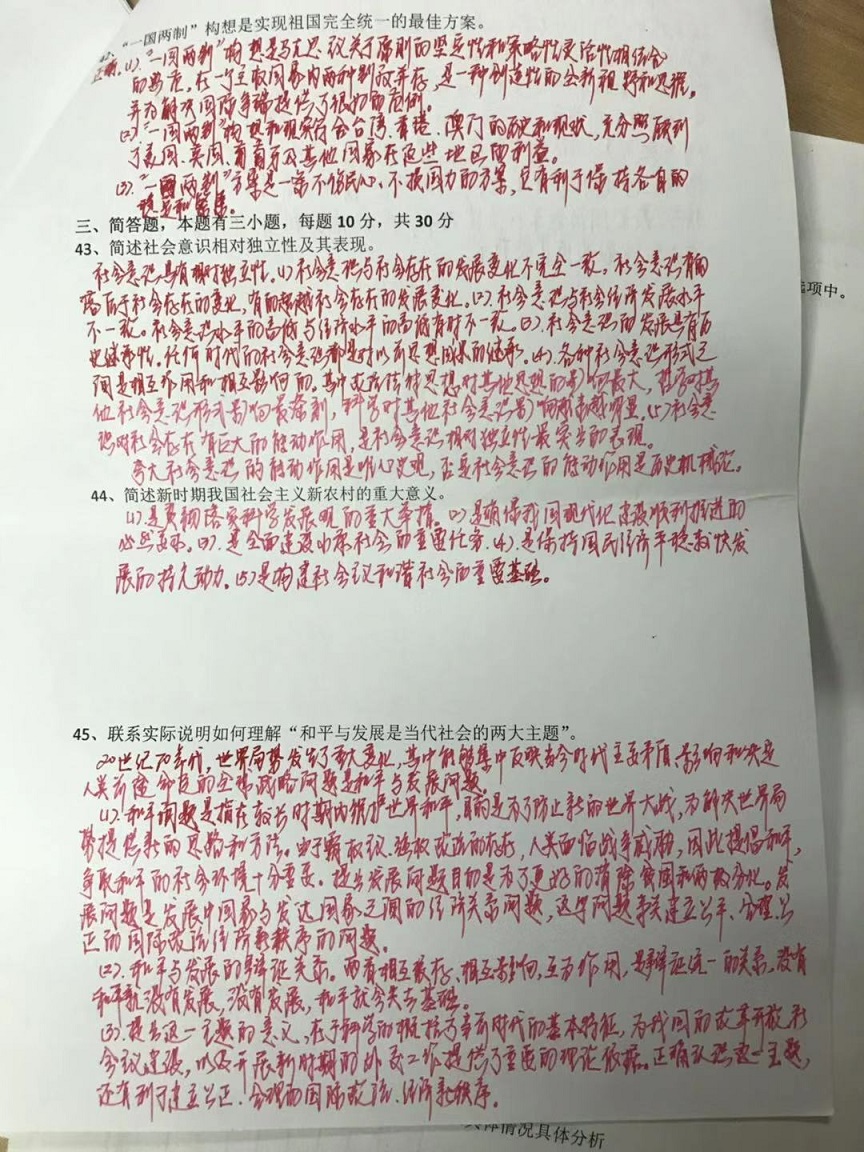 42、“一国两制”构想是实现祖国完全统一的最佳方案。
正确。(1)“一国两制”构想是马克思主义关于原则的坚定性和策略性灵活性相结合
的典范，在一个主权国家内两种制度并存，是一种创造性的全新视野和思维，
并为解决国际争端提供了很好的范例。
(2)“一国两制”构想和现实符合台湾、香港、澳门的历史和现状，充分照顾到
了美国、英国、葡萄牙及其他国家在这些地区的利益。
(3)“一国两制”方案是一条不伤民心、不损国力的方案，只有利于保持各自的
稳定和繁荣。
三、简答题，本题有三小题，每题 10 分，共 30 分
43、简述社会意识相对独立性及其表现。
社会意识具有相对独立性。(1)社会意识与社会存在的发展变化不完全一致。社会意识有的
落后于社会存在的变化，有的超越社会存在的发展变化。(2)社会意识与社会经济发展水平
不一致。社会意识水平的高低与经济水平的高低有时不一致。(3)社会意识的发展具有历
史继承性。任何时代的社会意识都是对以前思想成果的继承。(4)各种社会意识形式之
间是相互作用和相互影响的。其中政治法律思想对其他思想的影响最大，哲学对其
他社会意识形式影响最深刻，科学对其他社会意识影响越来越明显。(5)社会意
识对社会存在有巨大的能动作用，是社会意识相对独立性最突出的表现。
夸大社会意识的能动作用是唯心史观，否定社会意识的能动作用是历史机械论。
44、简述新时期我国社会主义新农村的重大意义。
(1)是贯彻落实科学发展观的重大举措。(2)是确保我国现代化建设顺利推进的
必然要求。(3)是全面建设小康社会的重要任务。(4)是保持国民经济平稳较快发
展的持久动力。(5)是构建社会主义和谐社会的重要基础。
45、联系实际说明如何理解“和平与发展是当代社会的两大主题”。
20世纪70年代，世界局势发生了重大变化，其中能够集中反映当今时代主要矛盾、影响和决定
人类前途命运的全球战略问题是和平与发展问题。
(1)和平问题是指在较长时期内维护世界和平，目的是为了防止新的世界大战，为解决世界局
势提供新的思路和方法。由于霸权主义、强权政治的存在，人类面临战争威胁，因此提倡和平，
争取和平的社会环境十分重要。提出发展问题目的是为了更好的消除贫困和两极分化。发
展问题是发展中国家与发达国家之间的经济关系问题，这个问题事关建立公平、合理公
正的国际政治经济新秩序的问题。
(2)和平与发展的辩证关系。两者相互依存、相互影响，互为作用，是辩证统一的关系。没有
和平就没有发展，没有发展，和平就会失去基础。
(3)提出这一主题的意义，在于科学的概括了当前时代的基本特征，为我国的改革开放社
会主义建设，以及开展新时期的外交工作提供了重要的理论依据。正确认识这一主题，
还有利于建立公正、合理的国际政治、经济新秩序。
选项中。
具体情况具体分析